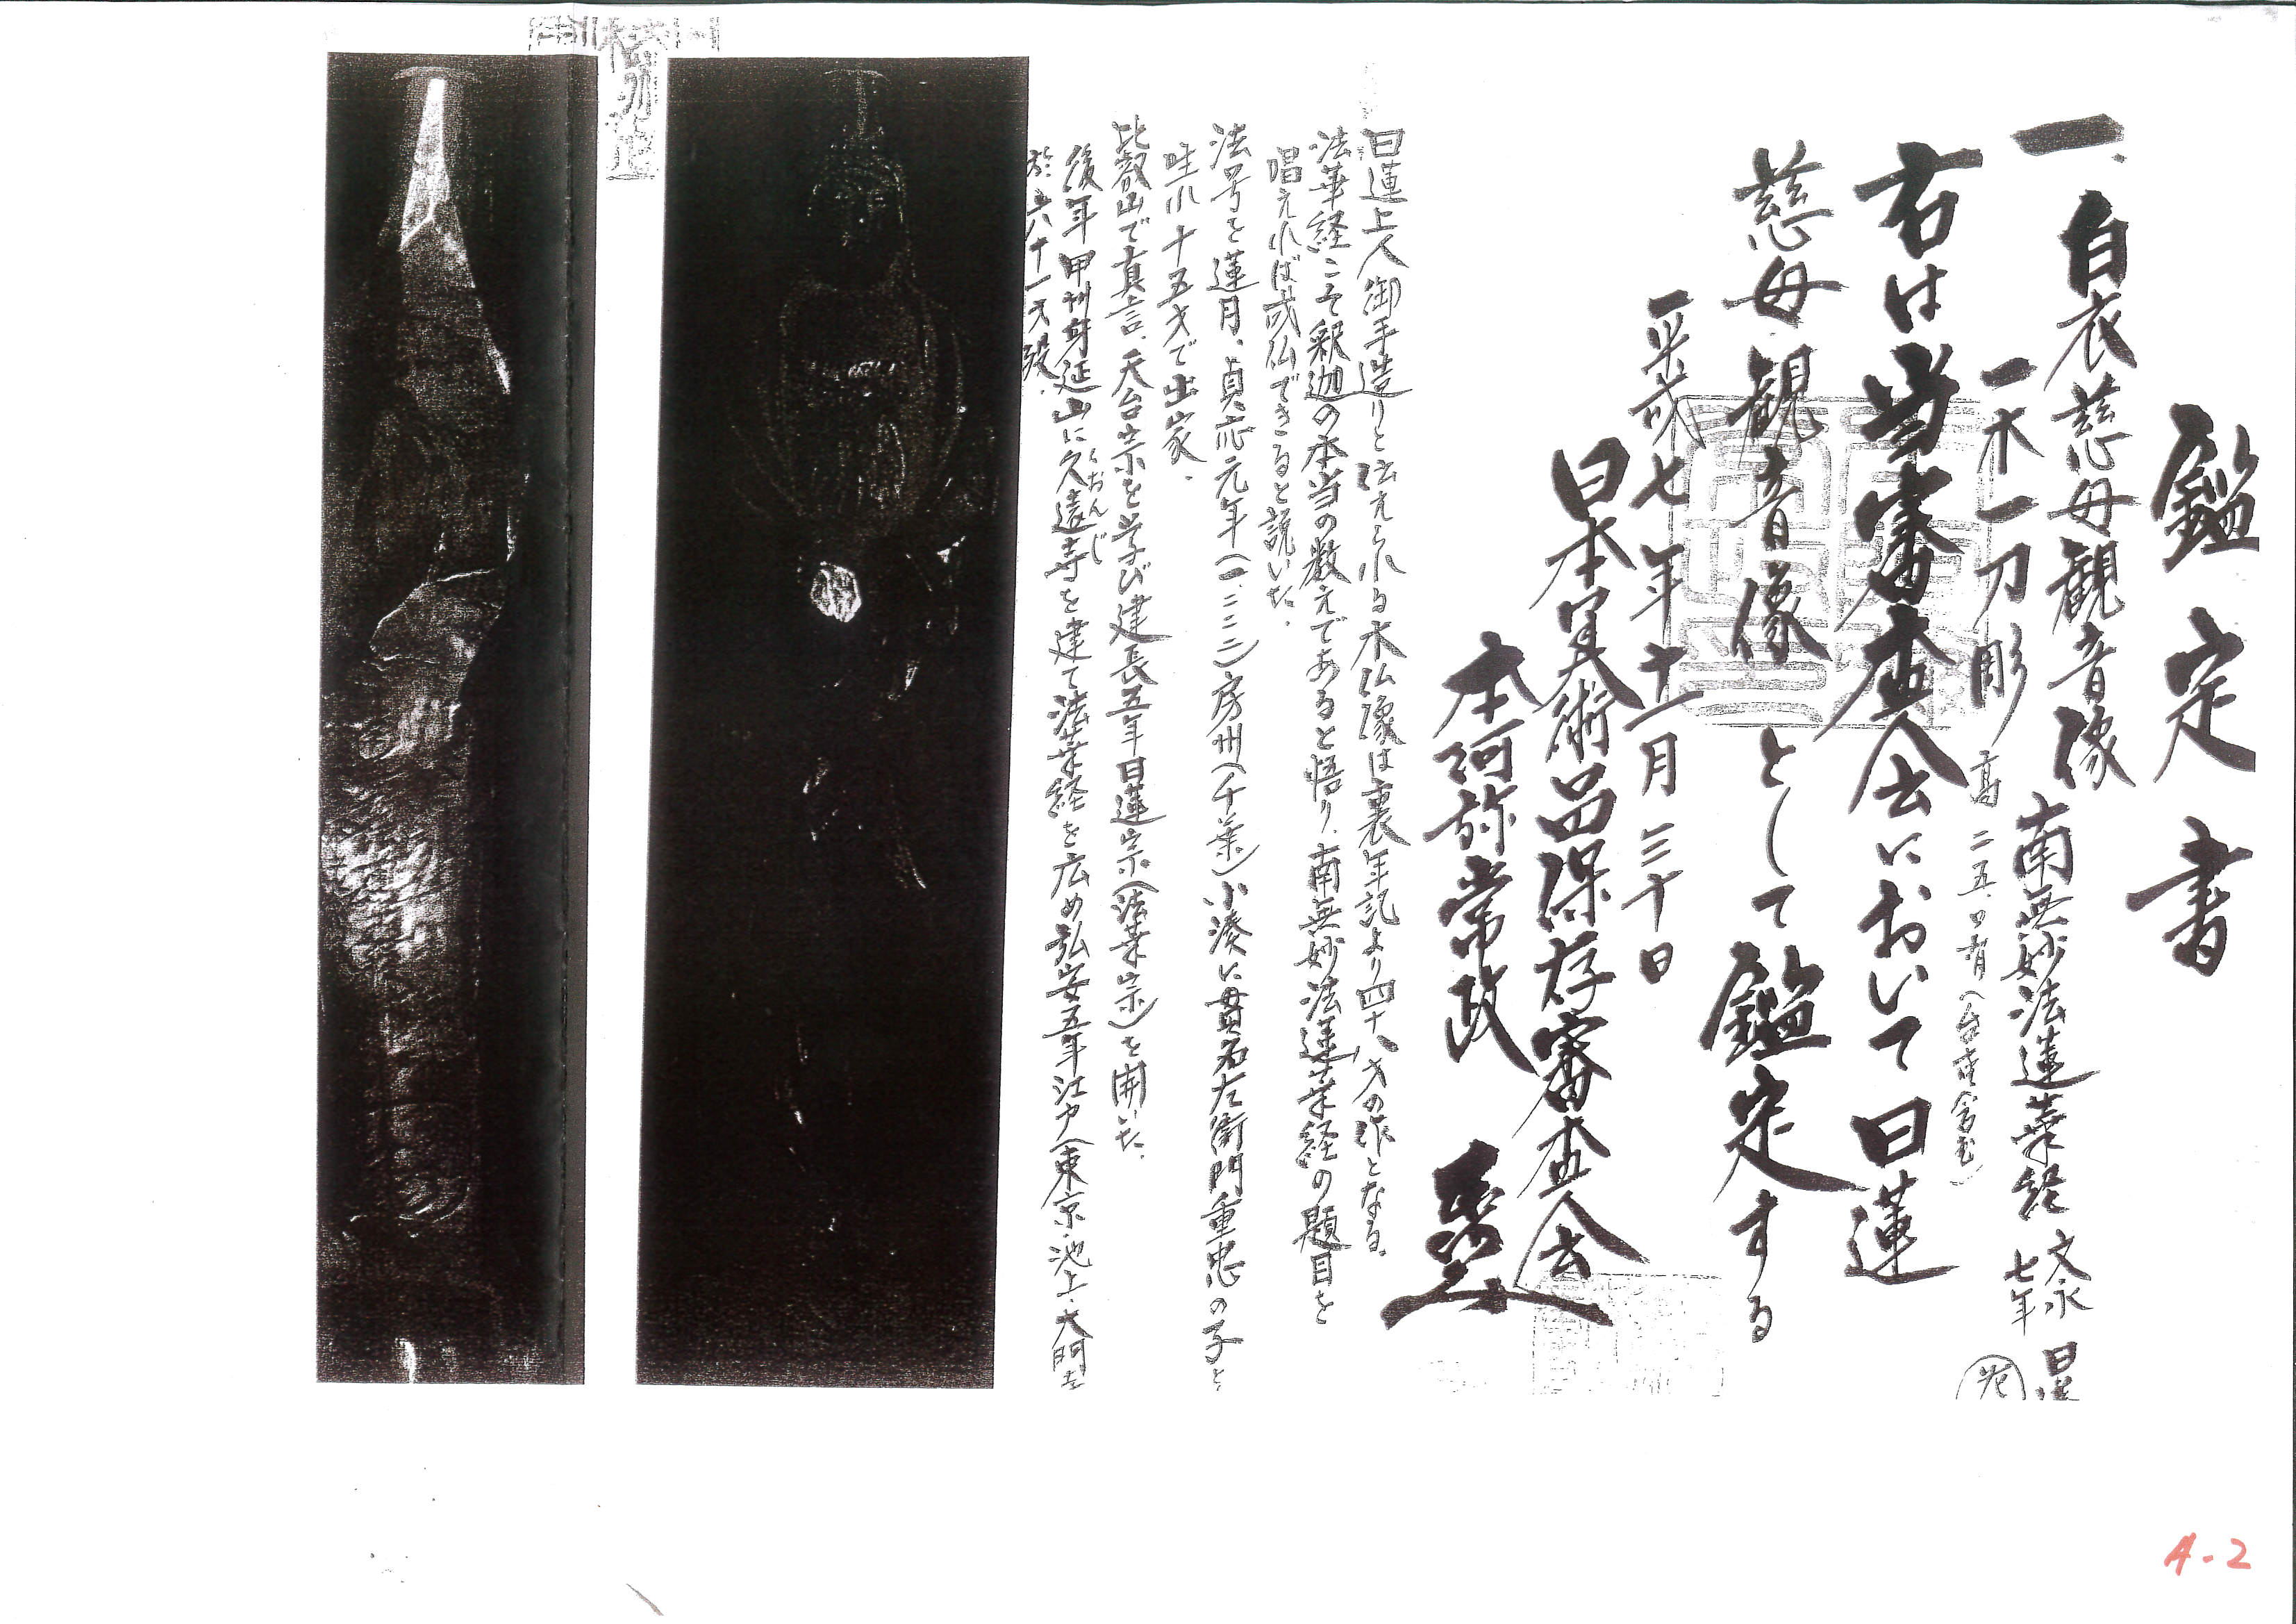 鑑定書
一、白衣慈母観音像
南無妙法蓮華経 文永七年 日蓮
一木一刀彫 高 二五
右は当審査会において日蓮
慈母観音像として鑑定する
平成七年十一月三十日
日本美術品保存審査会
本阿弥常政
日蓮上人御手造りと伝えられる木仏像は裏年記より四十八才の作となる。
法華経こそ釈迦の本当の教えであると悟り、南無妙法蓮華経の題目を
唱えれば成仏できると説いた。
法号を蓮月、貞応元年(一二二二)房州(千葉)小湊に貫名左衛門重忠の子と
生れ十五才で出家、
比叡山で真言、天台宗を学び建長五年日蓮宗(法華宗)を開いた。
後年甲州身延山に久遠寺を建て法華経を広め弘安五年江戸(東京・池上・大門)
くおんじ
於 六十一才歿、
A-2